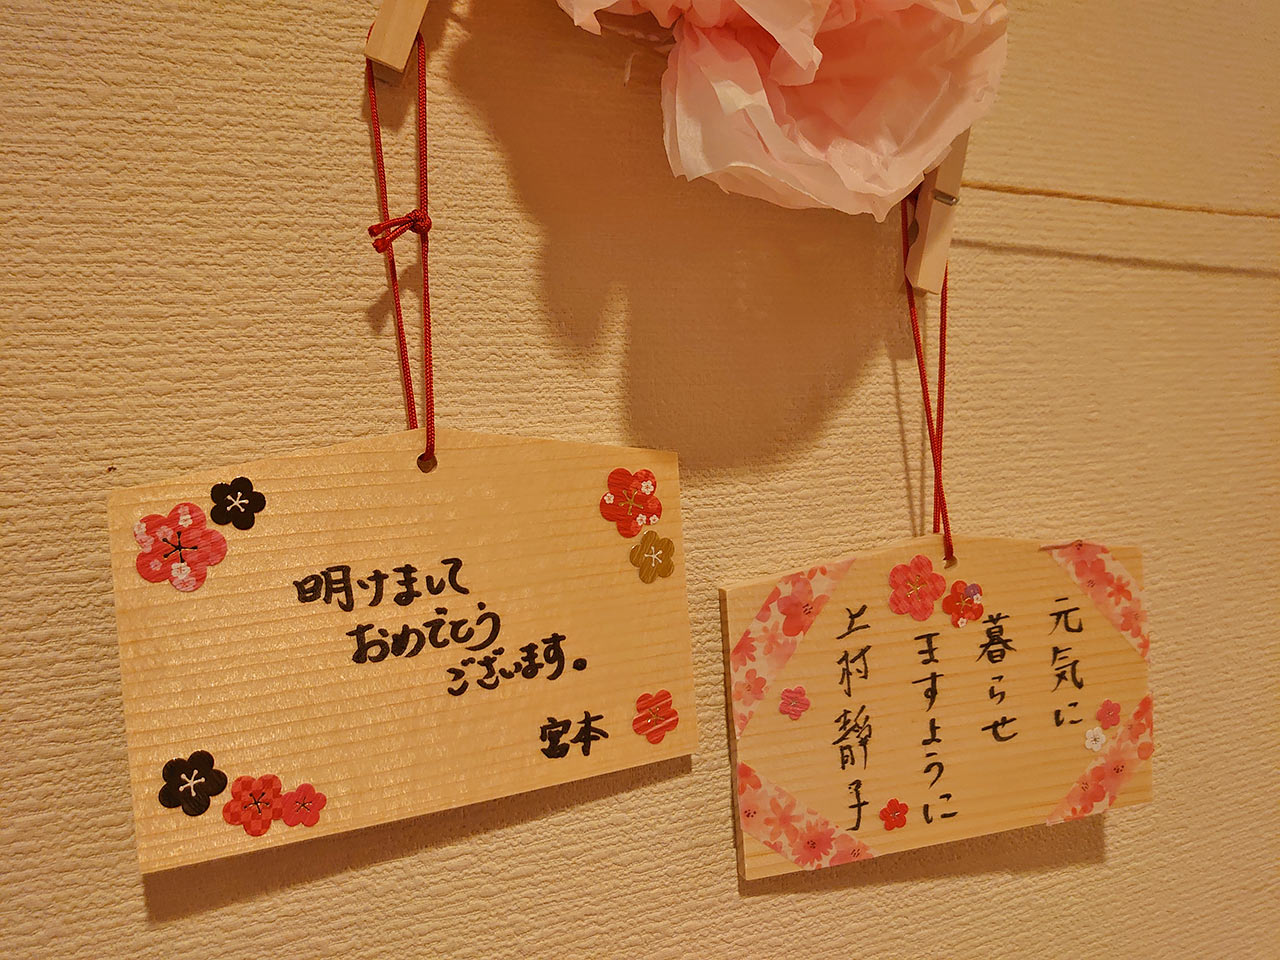 明けまして
おめでとう
ございます。
宮本
元気に
暮らせ
ますように
上村靜子